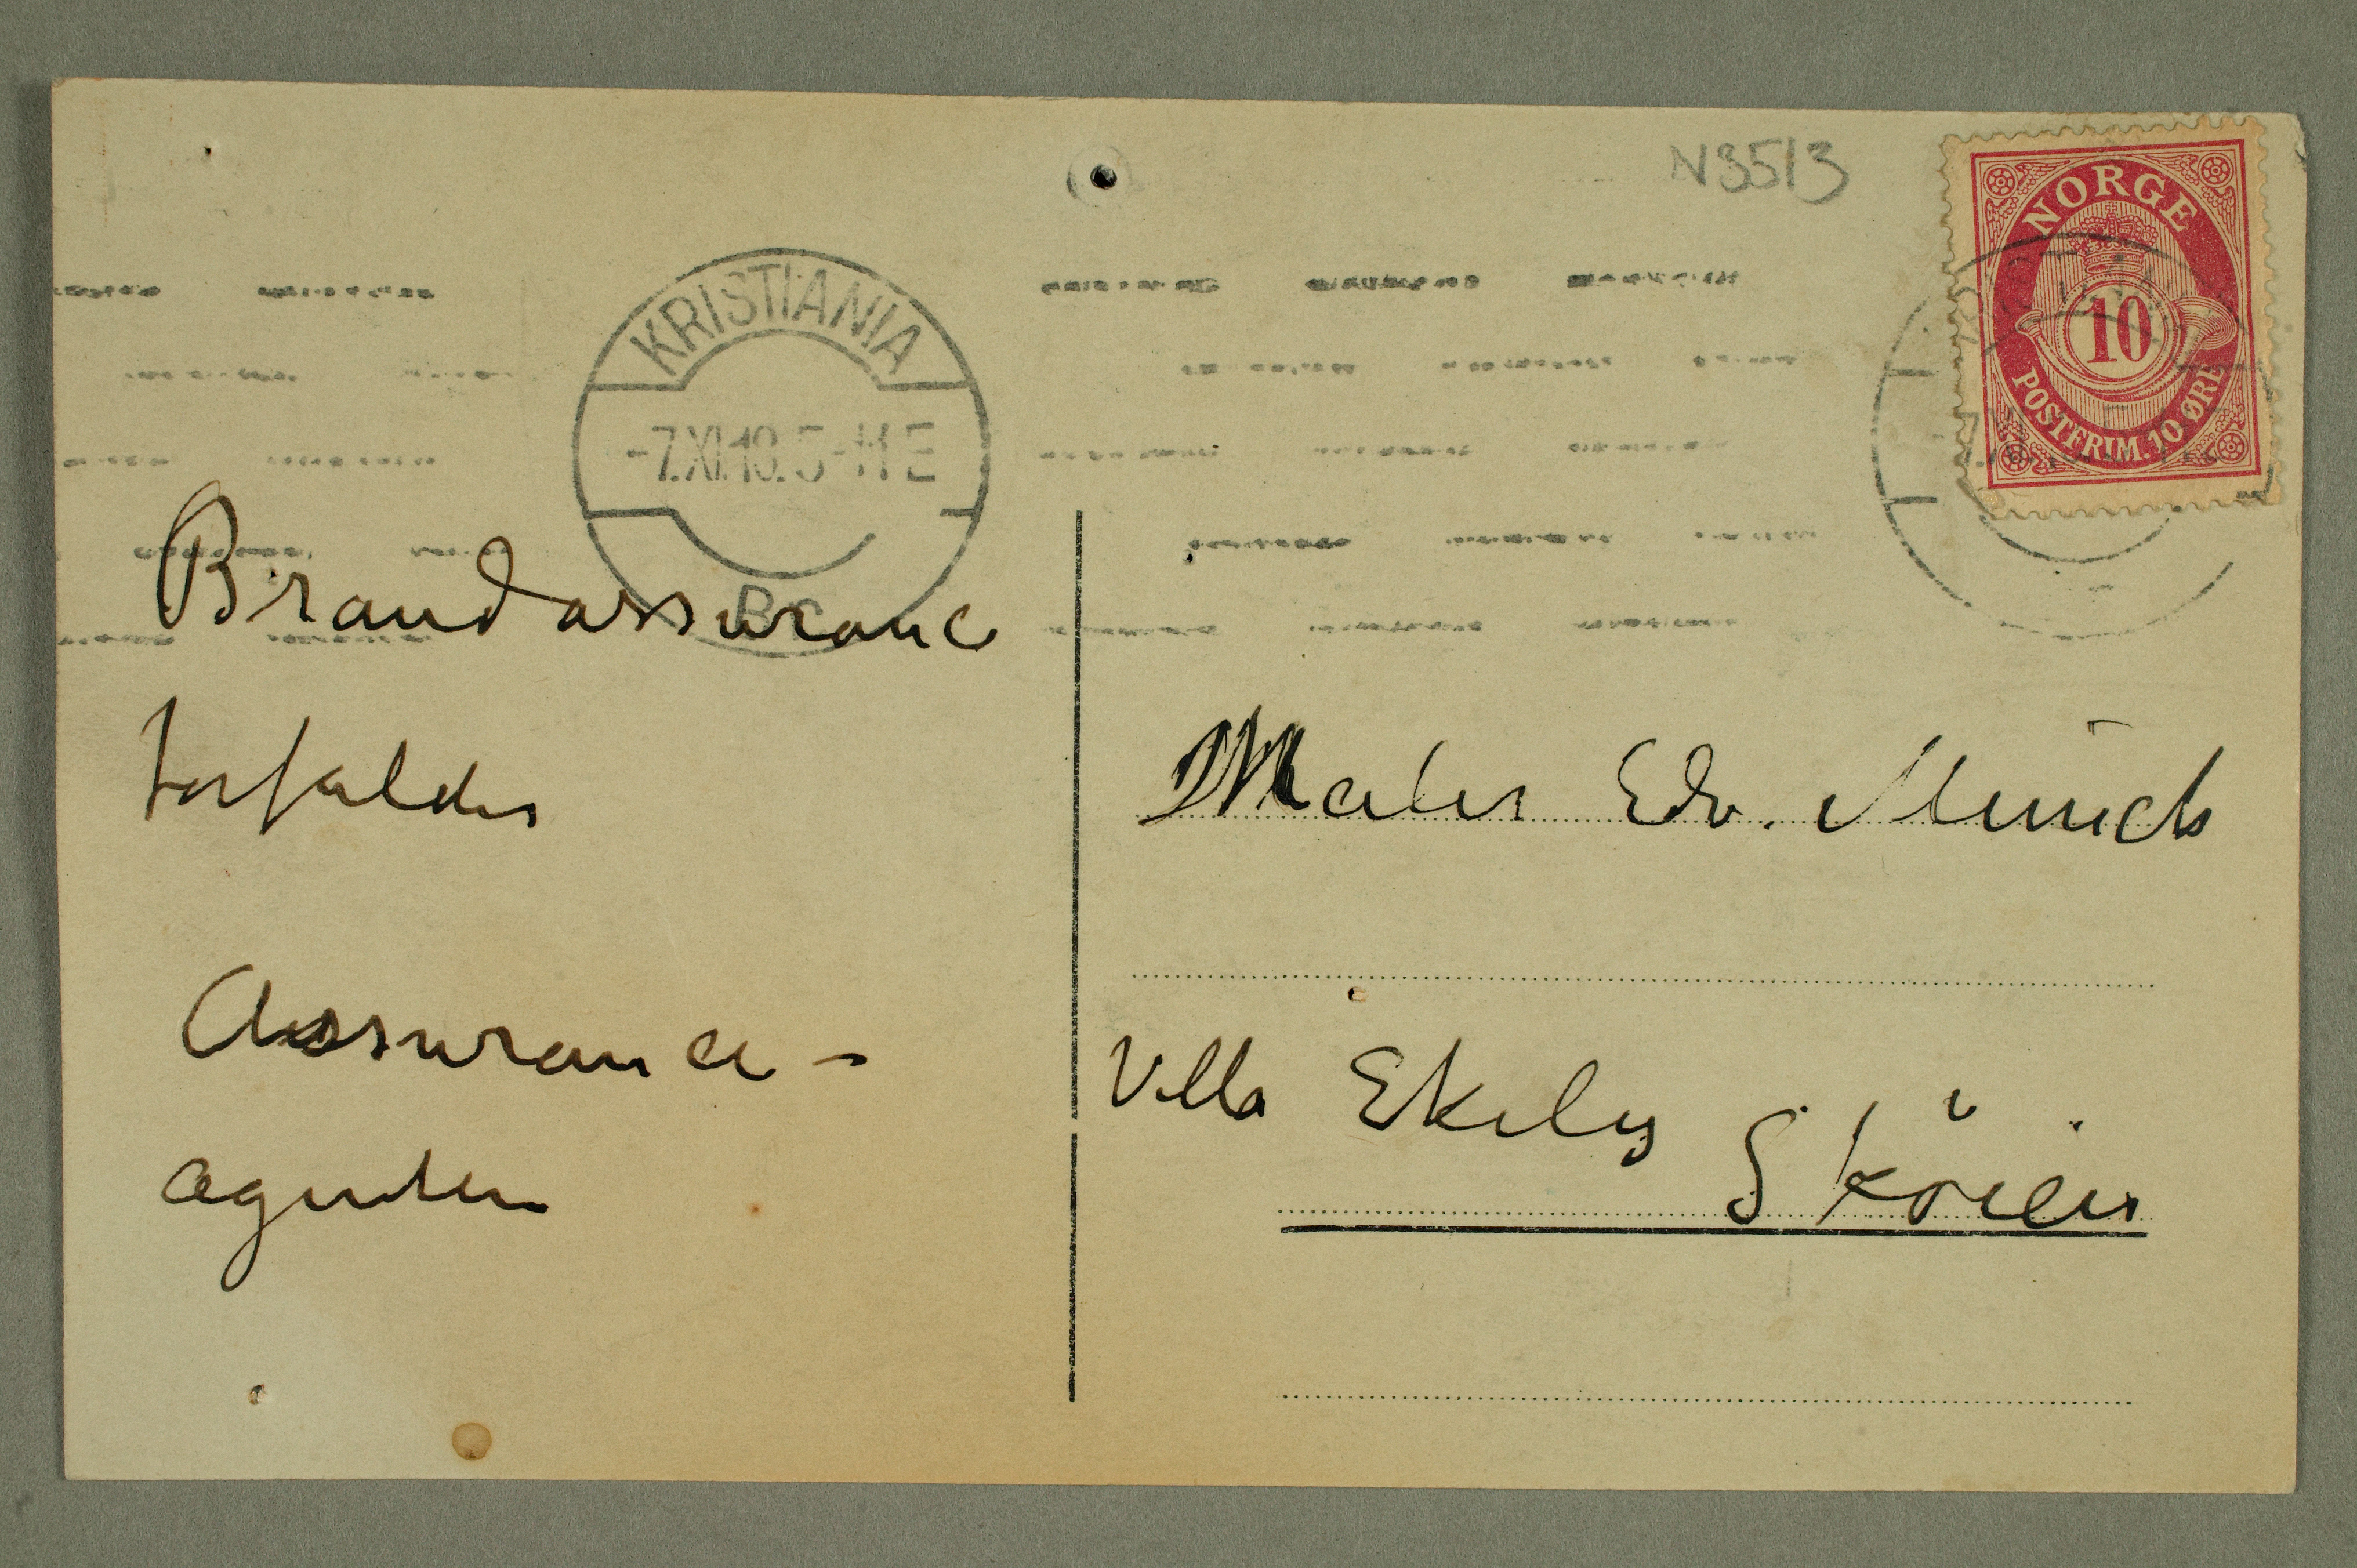 N3513
NORGE
10
POSTFRIM. 10 ØRE
KRISTIANIA
-7.XI.18. 5-11 E
Bc
Brandassuranc
forfalder
Assurance-
agenten
Maler Edv. Munch
Villa Ekely
Sköien